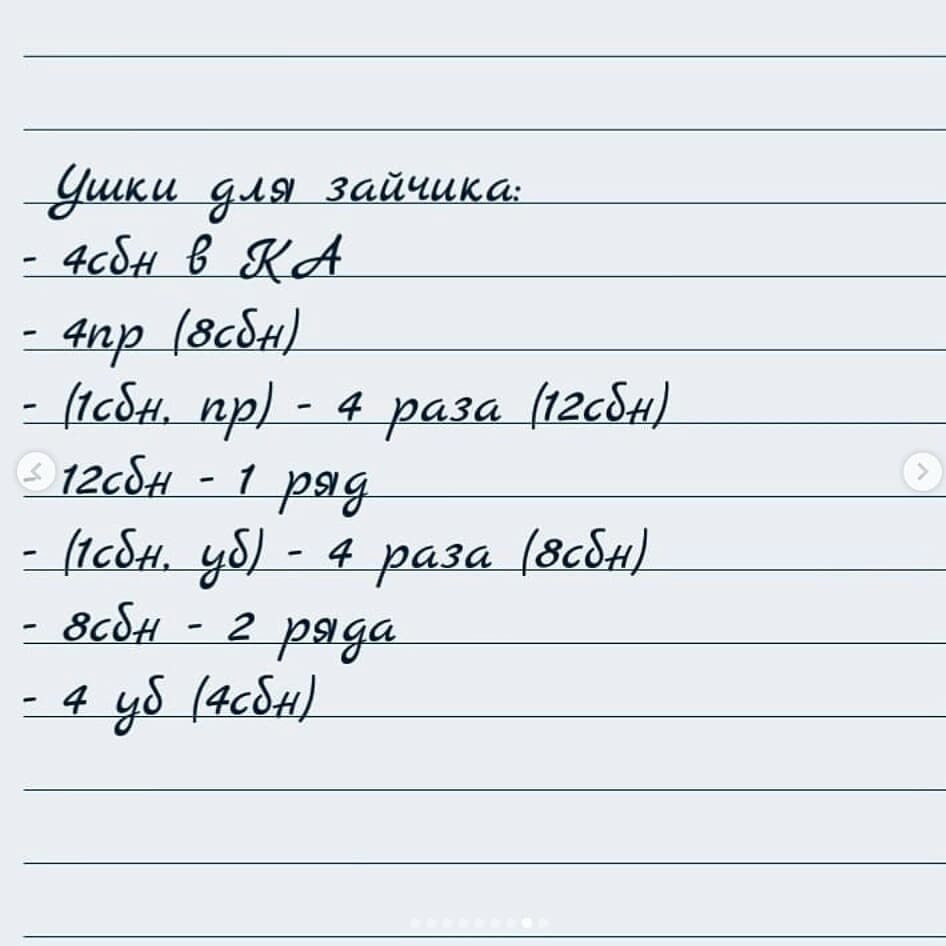 Ушки для зайчика:
- 4сбн в КА
- 4пр (8сбн)
- (1сбн, пр) - 4 раза (12сбн)
12сбн - 1 ряд
- (1сбн, уб) - 4 раза (8сбн)
- 8сбн - 2 ряда
- 4 уб (4сбн)